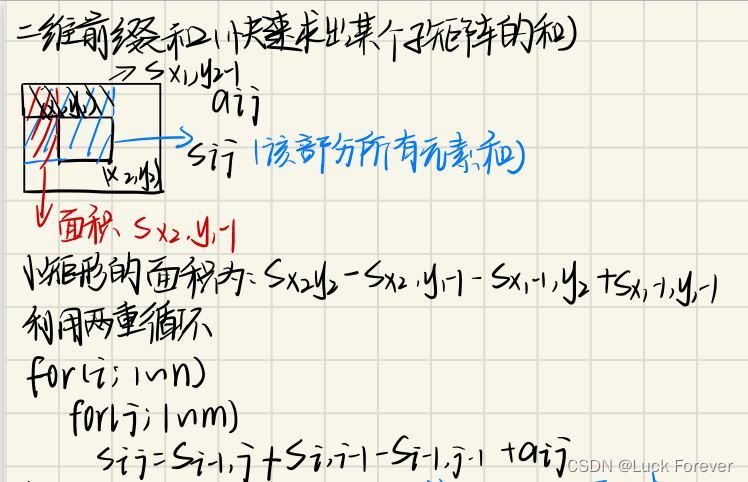 二维前缀和(快速求出某个子矩阵的和)
→ Sx1,y2-1
aij
(x2,y2)
Sij (该部分所有元素和)
面积、Sx2,y1-1
小矩形的面积为: Sx2y2 - Sx2,y1-1 - Sx1-1,y2 + Sx1-1,y1-1
利用两重循环
for(i; 1~n)
for(j; 1~m)
Sij = Si-1,j + Si,j-1 - Si-1,j-1 + aij
CSDN @Luck Forever